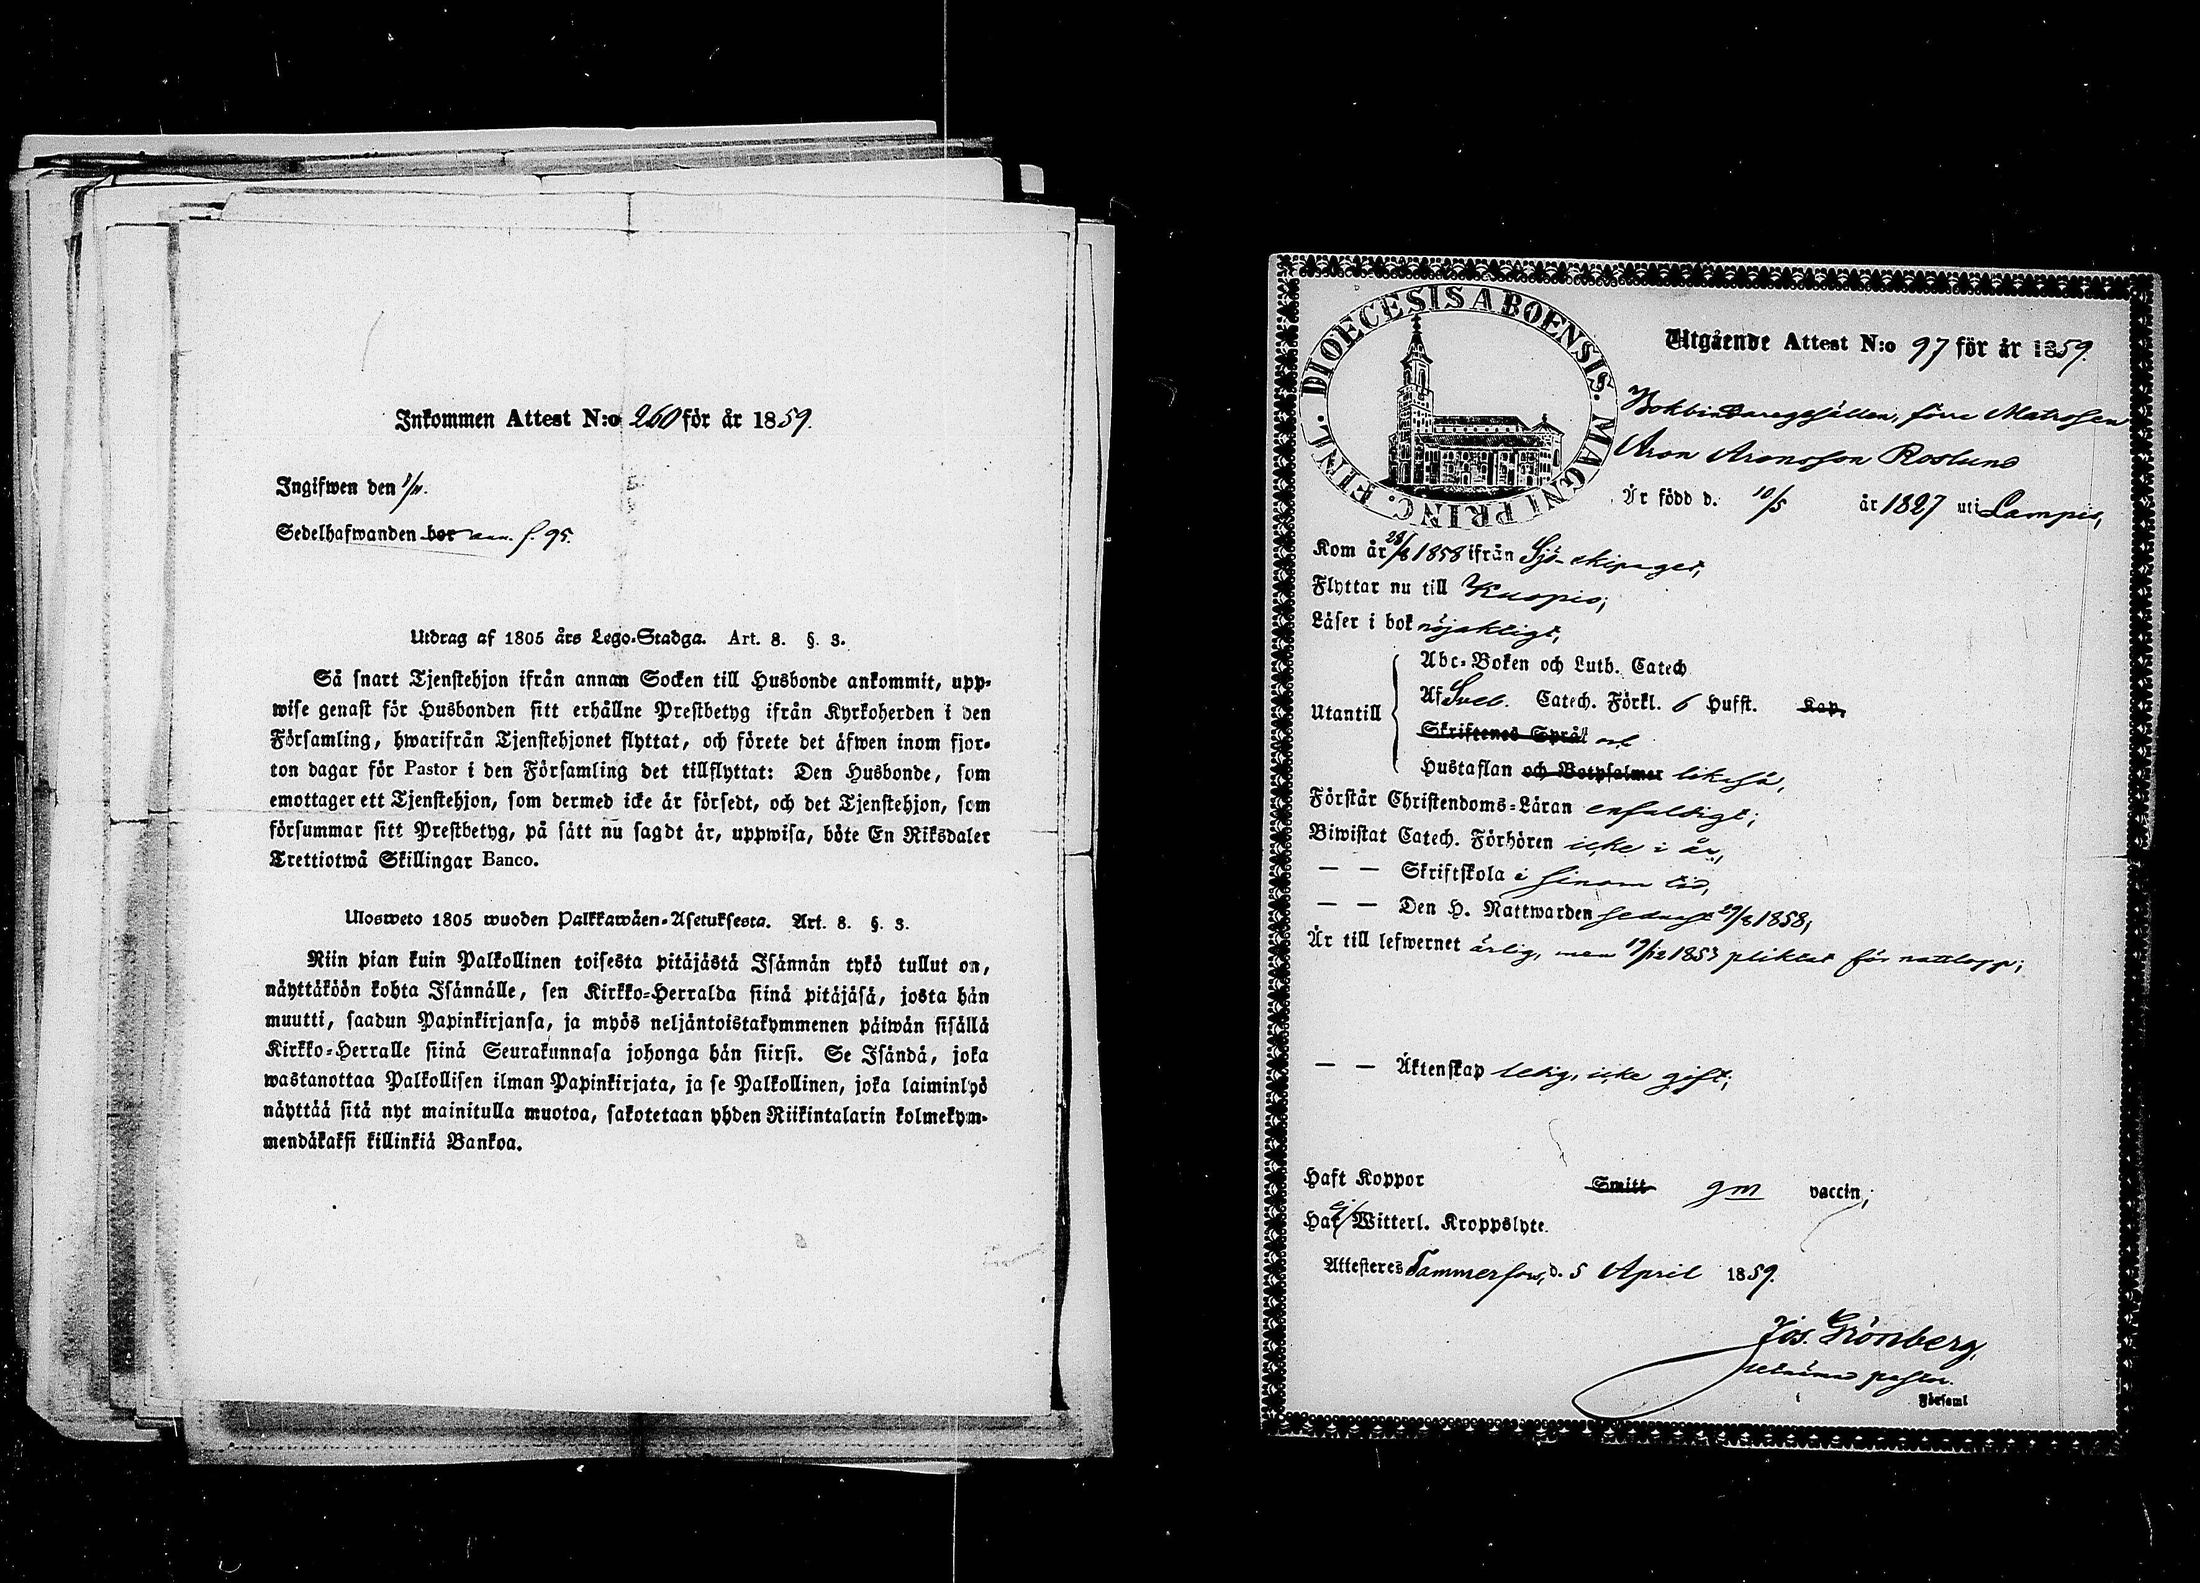 Inkommen Attest N:o 260 för år 1859.
Ingifwen den 1/11.
Sedelhafwanden bor ann. f. 95.
Utdrag af 1805 års Lego-Stadga. Art. 8. §. 3.
Så snart Tjenstehjon ifrån annan Socken till Husbonde ankommit, upp-
wise genast för Husbonden sitt erhållne Prestbetyg ifrån Kyrkoherden i den
Församling, hwarifrån Tjenstehjonet flyttat, och förete det äfwen inom fjor-
ton dagar för Pastor i den Församling det tillflyttat: Den Husbonde, som
emottager ett Tjenstehjon, som dermed icke är försedt, och det Tjenstehjon, som
försummar sitt Prestbetyg, på sätt nu sagdt är, uppwisa, böte En Riksdaler
Trettiotwå Skillingar Banco.
Ulosweto 1805 wuoden Palkkawäen-Asetuksesta. Art. 8. §. 3.
Niin pian kuin Palkollinen toisesta pitäjästä Isännän tykö tullut on,
näyttäköön kohta Isännälle, sen Kirkko-Herralda siinä pitäjäsä, josta hän
muutti, saadun Papinkirjansa, ja myös neljäntoistakymmenen päiwän sisällä
Kirkko-Herralle siinä Seurakunnasa johonga hän siirsi. Se Isändä, joka
wastanottaa Palkollisen ilman Papinkirjata, ja se Palkollinen, joka laiminlyö
näyttää sitä nyt mainitulla muotoa, sakotetaan yhden Riikintalarin kolmekym-
mendäkaksi killinkiä Bankoa.
DIOECESIS ABOENSIS. MAGNI PRINC. FINL.
Utgående Attest N:o 97 för år 1859.
Bokbindaregesällen, förre Matrosen
Aron Aronsson Roslund
Är född d. 10/5 år 1827 uti Lampis,
Kom år 28/8 1858 ifrån Sjö-ekipaget,
Flyttar nu till Kuopio;
Läser i bok nöjaktigt,
Utantill
Abc-Boken och Luth. Catech
Af Sveb. Catech. Förkl. 6 Hufst. Kap.
Skriftenes Språk och
Hustaflan och Botpsalmer likaså,
Förstår Christendoms-Läran enfaldigt;
Biwistat Catech. Förhören icke i år,
— — Skriftskola i sinom tid,
— — Den H. Nattwarden sednast 29/8 1858,
Är till lefwernet ärlig, men 19/12 1853 pliktat för nattlopp;
— — Äktenskap ledig, icke gift;
Haft Koppor Smitt gm vaccin;
Har ej Witterl. Kroppslyte.
Attesteres Tammerfors, d. 5 April 1859.
Jos. Grönberg,
pastor.
i Församl